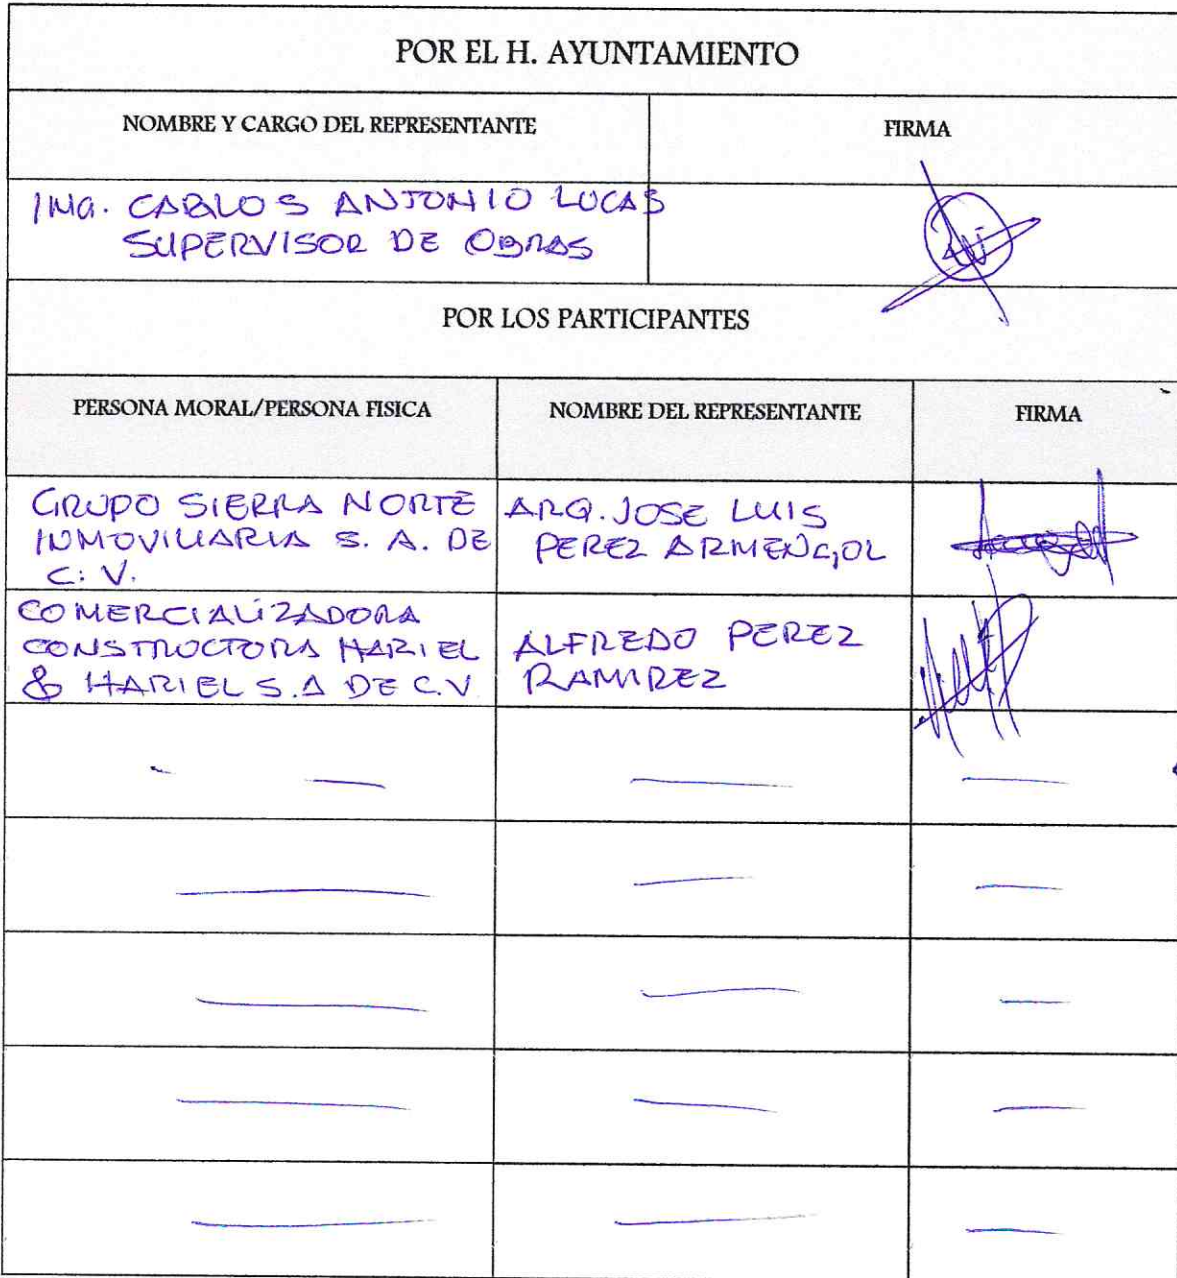 POR EL H. AYUNTAMIENTO
NOMBRE Y CARGO DEL REPRESENTANTE
FIRMA
ING. CARLOS ANTONIO LUCAS
SUPERVISOR DE OBRAS
POR LOS PARTICIPANTES
PERSONA MORAL/PERSONA FISICA
NOMBRE DEL REPRESENTANTE
FIRMA
GRUPO SIERRA NORTE
INMOVILIARIA S. A. DE
C. V.
ARQ. JOSE LUIS
PEREZ ARMENGOL
COMERCIALIZADORA
CONSTRUCTORA HARIEL
& HARIEL S.A DE C.V
ALFREDO PEREZ
RAMIREZ